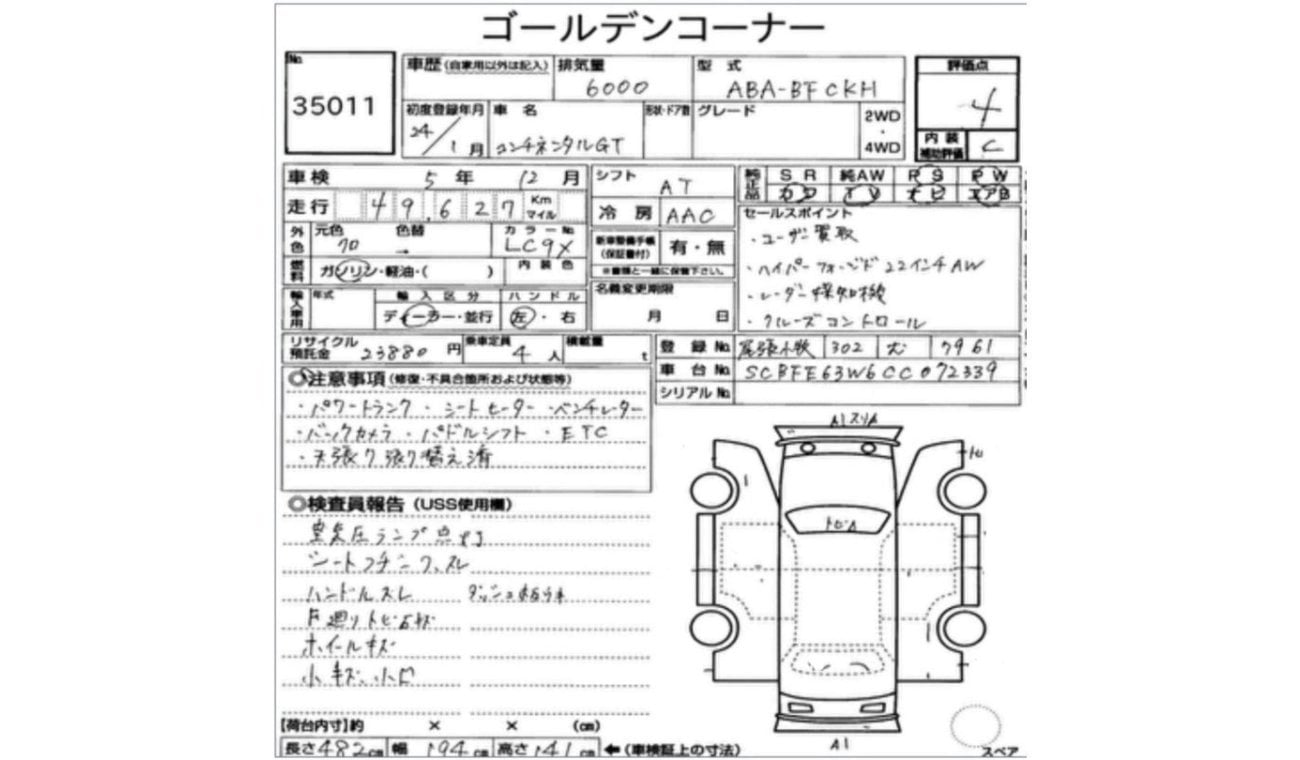 ゴールデンコーナー
No
35011
車歴 (自家用以外は記入) 排気量 6000 型式 ABA-BFCKH
評価点 4
初度登録年月 24/1月 車名 コンチネンタルGT 形状・ドア数 グレード 2WD・4WD
内装補助評価 C
車検 5年 12月 シフト AT
純正品 SR 純AW PS PW
カワ TV ナビ エアB
走行 49,627 Km マイル 冷房 AAC
セールスポイント
外色 元色 クロ 色替 → カラーNo LC9X
新車整備手帳(保証書付) 有・無
※書類と一緒に保管下さい。
・ユーザー買取
・ハイパーフォージド22インチAW
・レーダー探知機
・クルーズコントロール
燃料 ガソリン・軽油・( ) 内装色
名義変更期限 月 日
輸入車用 年式 輸入区分 ディーラー・並行 ハンドル 左・右
リサイクル預託金 23880円 乗車定員 4人 積載量 t
登録No 尾張小牧 302 む 7961
車台No SCBFE63W6CC072339
シリアルNo
◎注意事項 (修復・不具合箇所および状態等)
・パワートランク・シートヒーター・ベンチレーター
・バックカメラ・パドルシフト・ETC
・天張り張り替え済
◎検査員報告 (USS使用欄)
空気圧ランプ点灯
シートコゲ シワ、スレ
ハンドルスレ
ホイールキズ
小キズ、小凹
A1 スリA
トビA
A1
スペア
【荷台内寸】約 × × (cm)
長さ482cm 幅194cm 高さ141cm ←(車検証上の寸法)